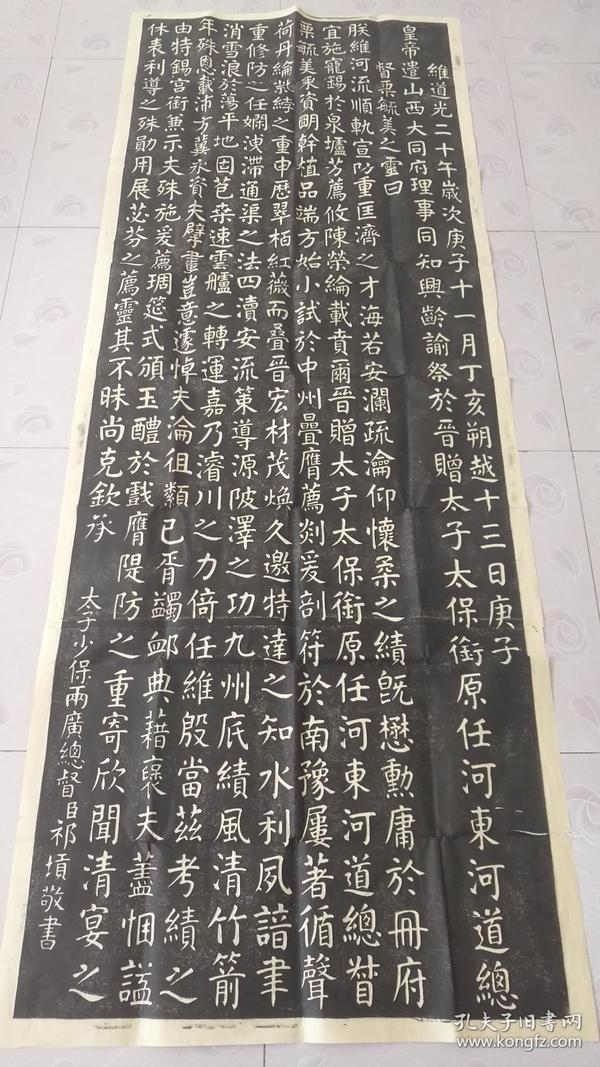 維道光二十年歲次庚子十一月丁亥朔越十三日庚子
皇帝遣山西大同府理事同知興齡諭祭於晉贈太子太保銜原任河東河道總
督栗毓美之靈曰
朕維河流順軌宣防重匡濟之才海若安瀾疏瀹仰懷柔之績既懋勳庸於冊府
宜施寵錫於泉壚芳薦攸陳榮綸載賁爾晉贈太子太保銜原任河東河道總督
栗毓美秉資明幹植品端方始小試於中州疊膺薦剡爰剖符於南豫屢著循聲
荷丹綸紫綍之重申歷翠栢紅薇而叠晉宏材茂煥久邀特達之知水利夙諳聿
重修防之任嫺洩滯通渠之法四瀆安流策導源陂澤之功九州底績風清竹箭
消雪浪於蕩平地固苞桑速雲艫之轉運嘉乃濬川之力倚任維殷當茲考績之
年殊恩載沛方冀永資夫擘畫豈意遽悼夫淪徂纇已胥蠲卹典藉褒夫藎悃諡
由特錫宮銜兼示夫殊施爰薦琱筵式頒玉醴於戲膺隄防之重寄欣聞清宴之
休表利導之殊勛用展苾芬之薦靈其不昧尚克欽承
太子少保兩廣總督臣祁𡎴敬書
孔夫子旧书网
www.kongfz.com